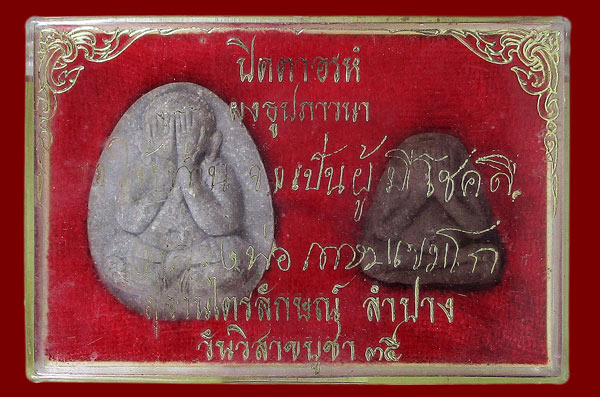 ปิดตาอรหํ
ผงธูปภาวนา
จงเป็นผู้มีโชคดี
พ่อ เกษม เขมโก
สุสานไตรลักษณ์ ลำปาง
วันวิสาขบูชา ๓๕